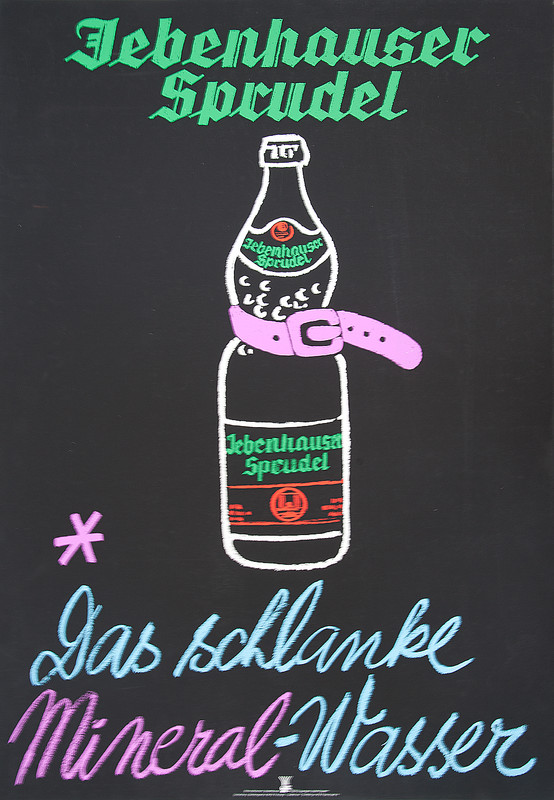 Jebenhauser
Sprudel
Jebenhauser
Sprudel
Jebenhauser
Sprudel
*
Das schlanke
Mineral-Wasser